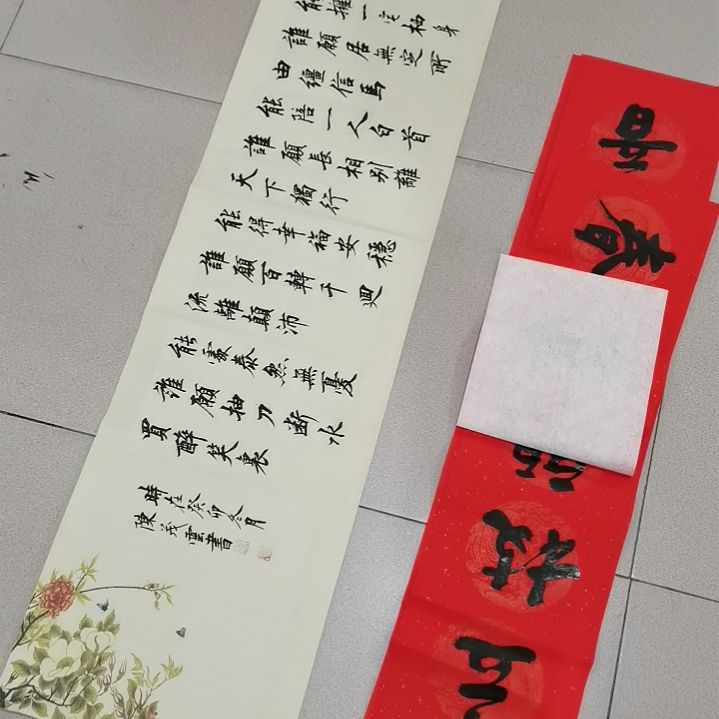 能擁一宅栖身
誰願居無定所
由韁信馬
能陪一人白首
誰願長相別離
天下獨行
能得幸福安穩
誰願百轉千迴
流離顛沛
能處泰然無憂
誰願抽刀斷水
買醉笑裏
時在癸卯冬月
陳茂雲書
春